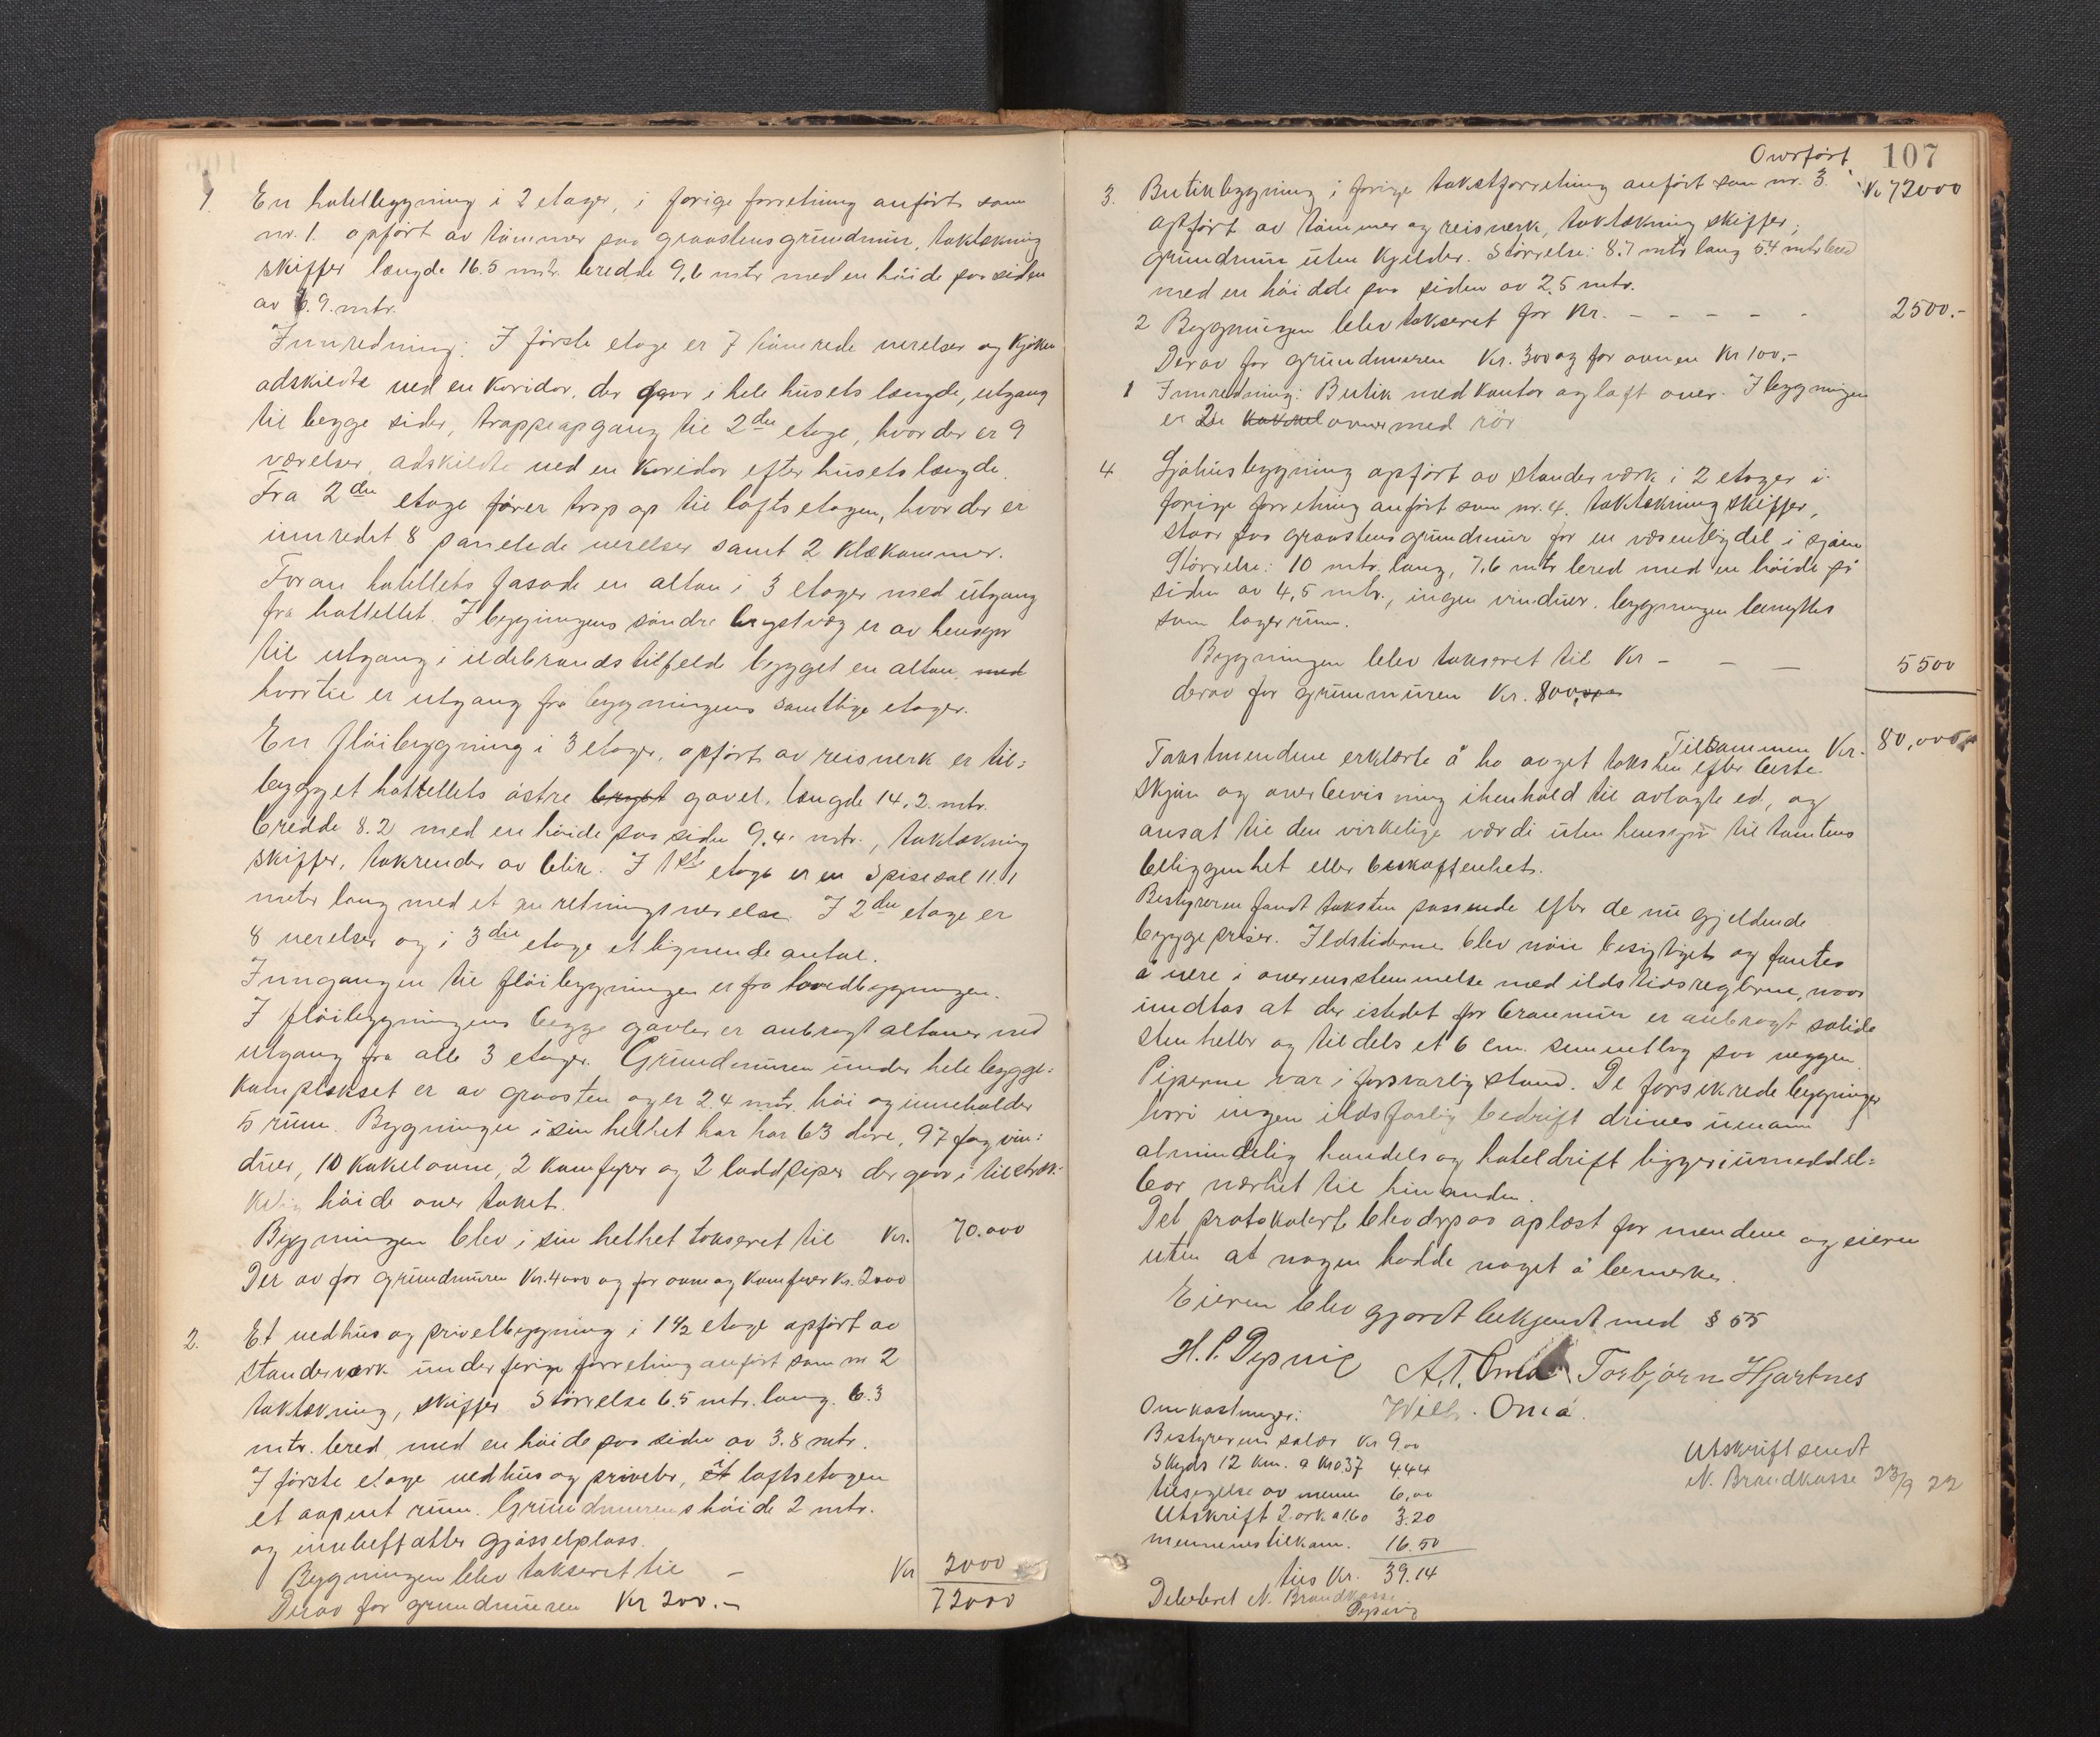 1. En hotelbygning i 2 etager, i forige forretning anført som
nr. 1. opført av tømmer paa graastensgrundmur, taktækning
skiffer længde 16.5 mtr. bredde 9,6 mtr med en høide paa siden
av 6.9. mtr.
Innredning: I første etage er 7 værelser og kjøken
adskildte ved en koridor, der gaar i hele husets længde, utgang
til begge sider, trappeopgang til 2den etage, hvor der er 9
værelser, adskildte ved en koridor efter husets længde.
Fra 2den etage fører trap op til loftsetagen, hvor der er
innredet 8 panelede verelser samt 2 klækammer.
Foran hotellets fasade en altan i 3 etager med utgang
fra hottellet. I bygningens søndre brystvæg er av hensyn
til utgang i ildebrandstilfeld bygget en altan, med
hvortil er utgang fra bygningens samtlige etager.
En fløibygning i 3 etager, opført av reisverk er til=
bygget hottellets østre bryst gavel, længde 14,2. mtr.
bredde 8.2 med en høide paa siden 9,4. mtr., taktækning
skiffer, takrender av blik. I 1ste etage er en Spisesal 11.1
meter lang med et anretningsverelse. I 2den etage er
8 verelser og i 3die etage et lignende antal.
Inngangen til fløibygningen er fra hovedbygningen.
I fløibygningens begge gavler er anbragt altaner med
utgang fra alle 3 etager. Grundmuren under hele bygge=
komplekset er av graasten og er 2.4 mtr. høi og inneholder
5 rum. Bygningen i sin helhet har har 63 døre, 97 fag vin=
duer, 10 kakelovne, 2 komfyrer og 2 loddpiper der gaar i tilstræk=
kelig høide over taket.
Bygningen blev i sin helhet takseret til Kr. 70.000
Der av for grundmuren Kr. 4000 og for ovne og komfyrer Kr. 2000
2. Et vedhus og privetbygning i 1 1/2 etage opført av
standerværk under forige forretning anført som nr 2
taktækning, skiffer Størrelse 6.5 mtr. lang. 6.3
mtr. bred, med en høide paa siden av 3.8 mtr.
I første etage vedhus og priveter, i loftsetagen
et aapent rum. Grundmurens høide 2 mtr.
og innbefatter gjødselplass.
Bygningen blev takseret til – Kr 2000
Derav for grundmuren Kr 200.– 72000
Overført 107
3. Butikbygning i forige takstforretning anført som nr. 3. Kr 72000
opført av tømmer og reisverk, taktækning skiffer,
grundmur uten kjelder. Størrelse: 8.7 mtr lang 5.4 mtr bred
med en høidde paa siden av 2,5 mtr.
2 Bygningen blev takseret for Kr. – – – – – 2500.–
Derav for grundmuren Kr. 300 og for ovnen Kr 100,–
1 Innredning: Butik med kontor og loft over. I bygningen
er 2 kakkel ovner med rør
4. Sjøhusbygning opført av standerværk i 2 etager i
forige forretning anført som nr. 4. taktækning skiffer,
staar paa graastensgrundmur for en væsentligdel i sjøen
Størrelse: 10 mtr. lang, 7,6 mtr bred med en høide på
siden av 4,5 mtr., ingen vinduer. bygningen benyttes
som lagerrum.
Bygningen blev takseret til Kr – – – 5500
derav for grunmuren Kr. 800,
Tilsammen Kr. 80,000
Takstmendene erklærte å ha avget taksten efter beste
skjøn og overbevisning ihenhold til avlagte ed, og
ansat til den virkelige værdi uten hensyn til tomtens
beliggenhet eller beskaffenhet.
Bestyreren fandt taksten passende efter de nu gjeldende
byggepriser. Ildstederne blev nøie besigtiget og fantes
å være i overensstemmelse med ildstedsreglerne, naar
undtas at der istedet for branmur er anbragt solide
stenheller og tildels et 6 cm. sementlag paa veggen.
Piperne var i forsvarlig stand. De forsikrede bygninger
hvori ingen ildsfarlig bedrift drives unntatt
almindelig handels og hoteldrift ligger i umiddel=
bar nærhet til hinanden.
Det protokolerte blev derpaa oplæst for mendene og eieren
uten at nogen hadde noget å bemerke.
Eieren blev gjordt bekjendt med § 55
H. P. Dypvig A. T. Oma Torbjørn Hjartnes
Wilh. Oma
Omkostninger:
Bestyrerens salær Kr 9,00
Skyds 12 km. a Kr 0.37 4.44
tilsigelse av menn 6,00
Utskrift 2 ark a 1.60 3.20
mennenes tilkom. 16.50
tils Kr. 39.14
Utskrift sendt
N. Brandkasse 23/9 22
Debeteret N. Brandkasse
Dypvig